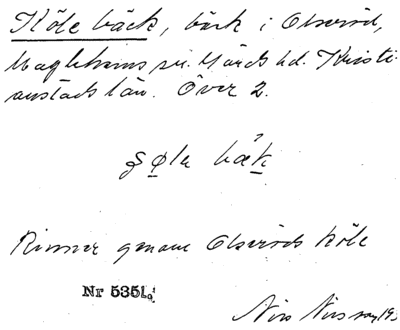 Köle bäck, bäck i Olseröd,
Maglehems sn. Gärds hd. Kristi-
anstads län. Över 2.
bæk
Rinner genom Olseröds köle
Nr 5351
Nils Nilsson 193